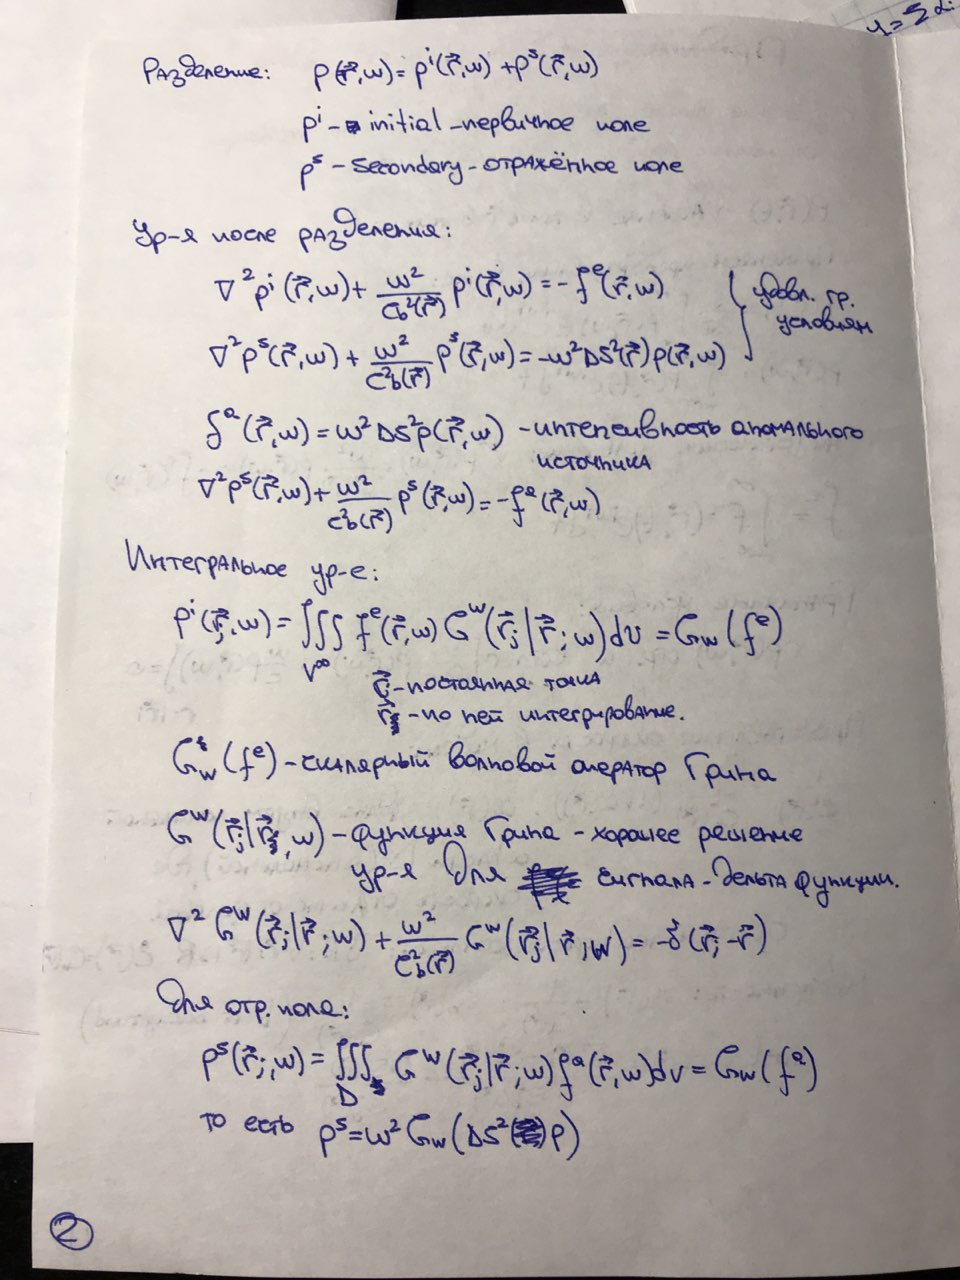 y=5
Разделение: p(r⃗,ω)=pⁱ(r⃗,ω)+pˢ(r⃗,ω)
pⁱ - initial - первичное поле
pˢ - secondary - отражённое поле
Ур-я после разделения:
∇²pⁱ(r⃗,ω)+ω²/c_b²(r⃗) pⁱ(r⃗,ω)=-fᵉ(r⃗,ω)
удовл. гр.
условиям
∇²pˢ(r⃗,ω)+ω²/c²_b(r⃗) pˢ(r⃗,ω)=-ω²ΔS²(r⃗)p(r⃗,ω)
fᵃ(r⃗,ω)=ω²ΔS²p(r⃗,ω) - интенсивность аномального
источника
∇²pˢ(r⃗,ω)+ω²/c²_b(r⃗) pˢ(r⃗,ω)=-fᵃ(r⃗,ω)
Интегральное ур-е:
pⁱ(r⃗_j,ω)=∭_{V^∞} fᵉ(r⃗,ω)G^w(r⃗_j|r⃗;ω)dv=G_w(fᵉ)
r⃗_j - постоянная точка
r⃗ - по ней интегрирование.
G_w(fᵉ) - скалярный волновой оператор Грина
G^w(r⃗_j|r⃗,ω) - функция Грина - хорошее решение
ур-я для сигнала - дельта функции.
∇²G^w(r⃗_j|r⃗;ω)+ω²/c²_b(r⃗) G^w(r⃗_j|r⃗;ω)=-δ(r⃗_j-r⃗)
Для отр. поля:
pˢ(r⃗_j,ω)=∭_D G^w(r⃗_j|r⃗;ω)fᵃ(r⃗,ω)dv=G_w(fᵃ)
то есть pˢ=ω²G_w(ΔS²p)
2